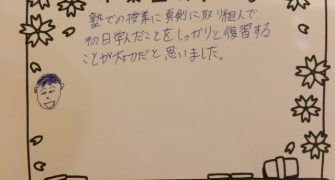 塾での授業に真剣に取り組んで、
初日学んだことをしっかりと復習する
ことが大切だと思いました。